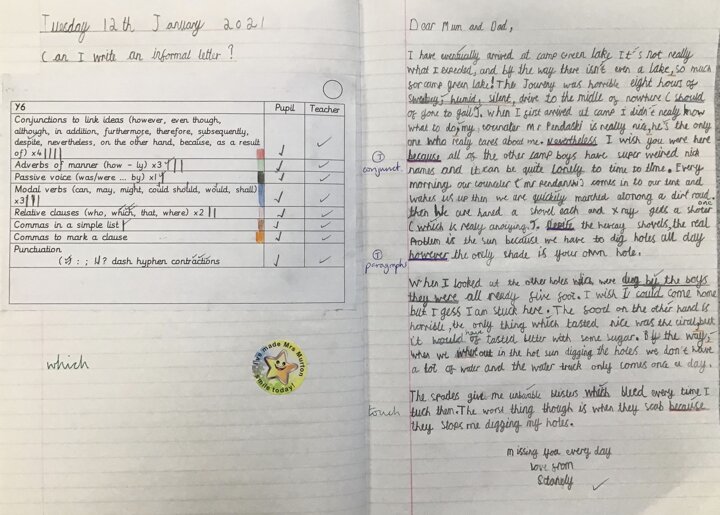 Tuesday 12th January 2021
Can I write an informal letter?
Y6 Pupil Teacher
Conjunctions to link ideas (however, even though,
although, in addition, furthermore, therefore, subsequently,
despite, nevertheless, on the other hand, because, as a result
of) x4
Adverbs of manner (how - ly) x3
Passive voice (was/were ... by) x1
Modal verbs (can, may, might, could should, would, shall)
x3
Relative clauses (who, which, that, where) x2
Commas in a simple list
Commas to mark a clause
Punctuation
dash hyphen contractions
which
I've made Mrs Murton
smile today!
Dear Mum and Dad,
I have eventically arrived at camp Green lake It's not really
what I expected, and by the way there isn't even a lake, so much
for camp green lake! The Journey was horrible eight hours of
humid, silent, drive to the middle of nowhere (should
of gone to gail). when I first arrived at camp I didn't realy know
what to do, my counsler Mr Pendaski is really nice, he's the only
one who realy cares about me. Nevertheless I wish you were here
because all of the other camp boys have super weired nick
names and it can be quite lonely to time to time. Every
morning our counsler (Mr Pendanski) comes in to our tent and
wakes us up then we are quickly marched along a dirt road.
then we are haned a shovel each and x ray gets a shorter one
(which is really anoying). Despite the heavay shovels, the real
problem is the sun because we have to dig holes all day
however the only shade is your own hole.
conjunct.
paragraphs
When I looked at the other holes which were dug by the boys
they were all ready five foot. I wish I could come home
but I gess I am stuck here. The food on the other hand is
horrible, the only thing which tasted nice was the ciral, but
it would have of tasted better with some sugar. By the way,
when we out in the hot sun digging the holes we don't have
a lot of water and the water truck only comes once a day.
The spades give me blisters which bleed every time I
tuch them. The worst thing though is when they scab because
they stops me digging my holes.
touch
missing you every day
love from
Stanely